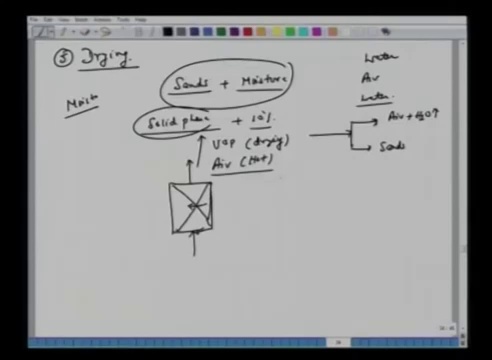 ⑤ Drying
Moist
Sands + Moisture
Solid phase + 10%
Vap (drying)
Air (Hot)
Water
Air
Water
Air + H₂O↑
Sands